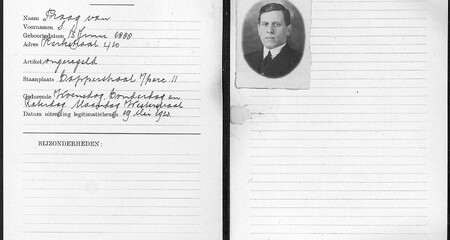 Naam Praag van
Voornamen S
Geboortedatum 13 Juni 1888
Adres Kerkstraat 420
Artikel ongeregeld
Staanplaats Dapperstraat
Gedurende Woensdag, Donderdag en
Zaterdag. Maandag Westerstraat
Datum uitreiking legitimatiebewijs 19 Mei 1923.
BIJZONDERHEDEN: